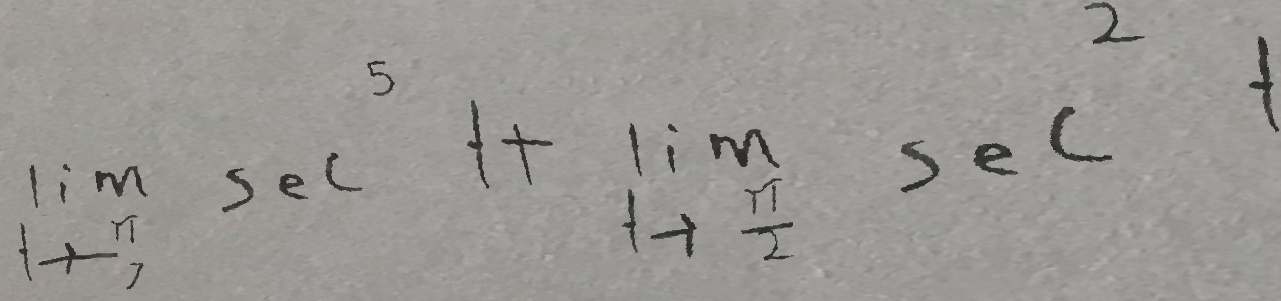 \lim_{t \to \frac{\pi}{7}} \sec^{5} t + \lim_{t \to \frac{\pi}{2}} \sec^{2} t